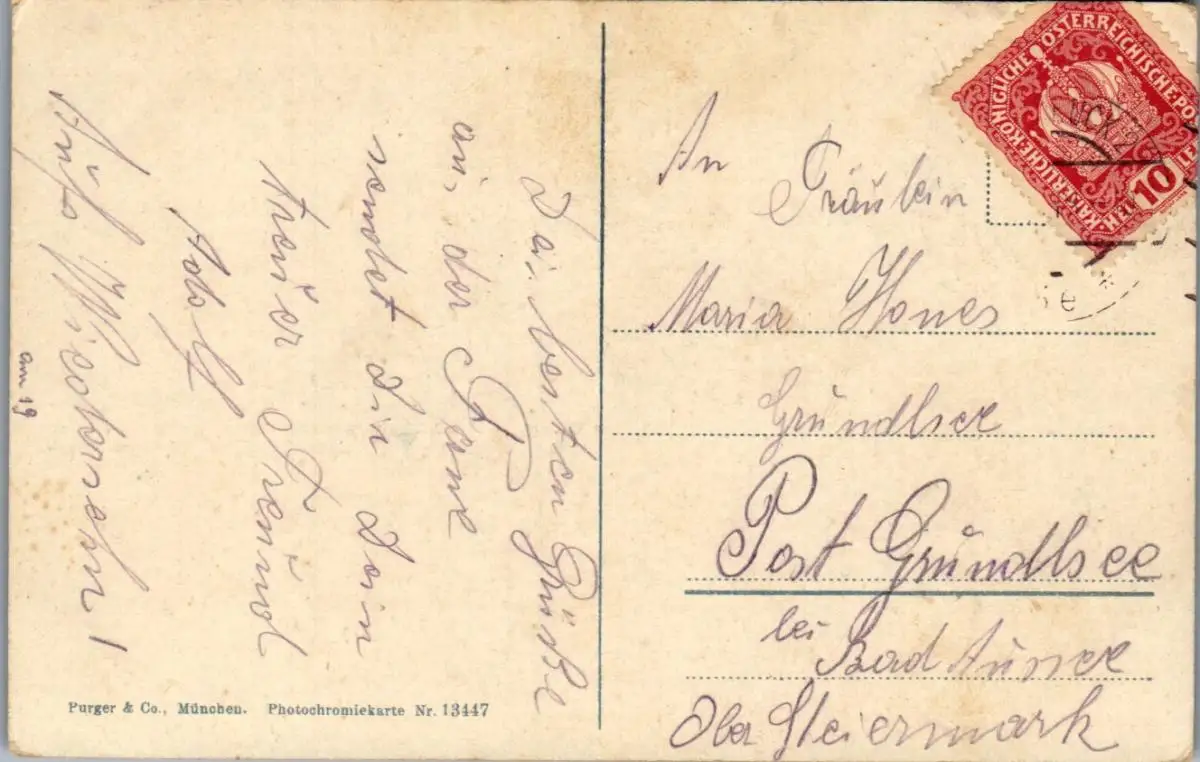 Die besten Grüße
aus der Ferne
sendet Dir Dein
treuer Freund
Adolf
Aufs Wiedersehn!
am 19
Purger & Co., München. Photochromiekarte Nr. 13447
KAISERLICHE KÖNIGLICHE ÖSTERREICHISCHE POST
10
An
Fräulein
Maria
Grundlsee
Post Grundlsee
bei
Bad Aussee
Ober Steiermark